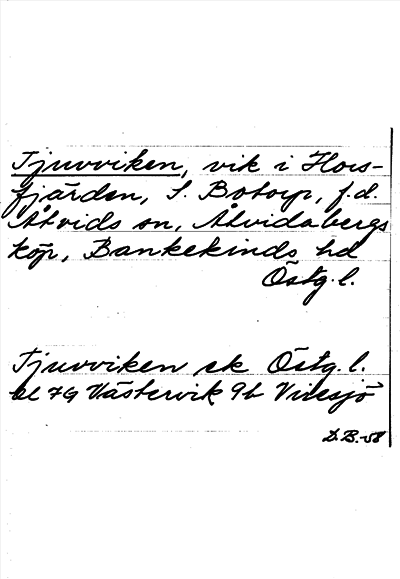 Tjuvviken, vik i Hors-
fjärden, S. Botorp, f.d.
Åtvids sn, Åtvidabergs
köp, Bankekinds hd
Östg.l.
Tjuvviken ek Östg.l.
bl 7G Västervik 9b Vinsjö
D.B.-58